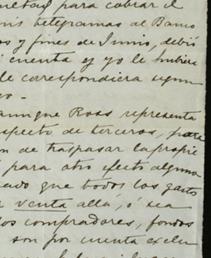 para cobrar el
mis telegramas al Banco
os y fines de Junio, debió
cuenta y yo le hubiera
le correspondiera
aunque Ross representa
respecto de terceros, 
on de traspasar la propie
para otro efecto alguno
que todos los gastos
venta allá, ó sea
os compradores, fondos
son por cuenta exclu